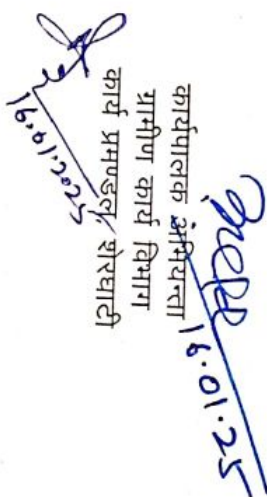 16.01.25
कार्यपालक अभियन्ता
ग्रामीण कार्य विभाग
कार्य प्रमण्डल, शेरघाटी
16.01.2025